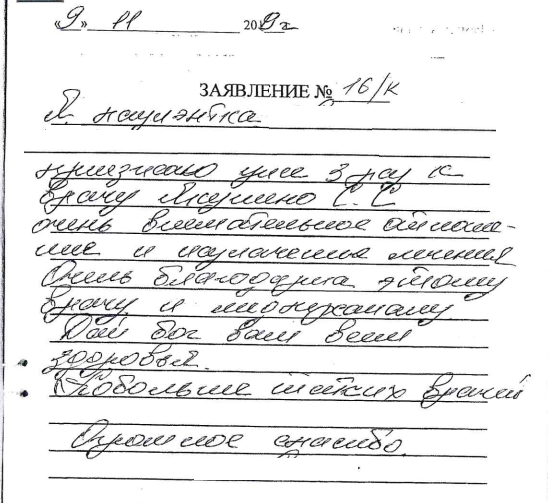 «9» 11 20
ЗАЯВЛЕНИЕ № 16/к
Я пациэнтка
приезжаю уже 3 раз к
врачу С.С
очень внемательное атноше-
ние и назначение лечения
Очень благодарна этому
врачу и медперсаналу
Дай бог вам всем
здоровья.
Побольше таких врачей
Огромное спасибо.